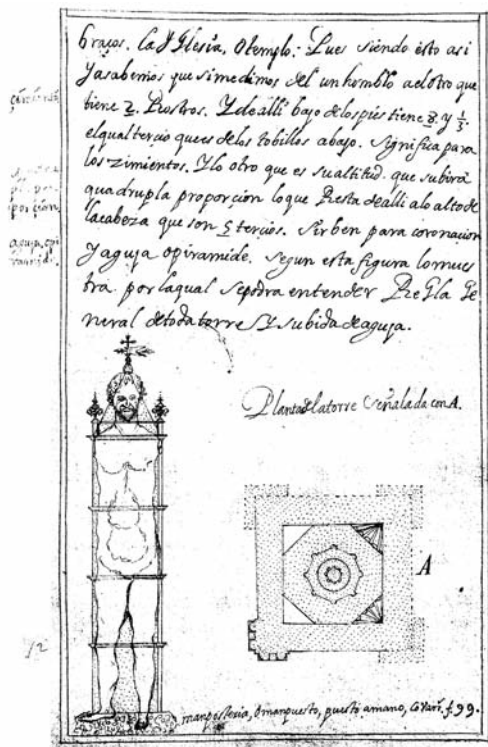 braços. la Yglesia, o templo: Pues siendo esto asi
yasabemos que si medimos del un hombro a el otro que
tiene 2. Rostros. Y de alli bajo de los pies tiene 8. y 1/3.
el qual tercio que es de los tobillos abajo. significa para
los zimientos. Y lo otro que es su altitud. que subira
quadrupla proporcion lo que Resta de alli a lo alto de
la cabeza que son 5 tercios. Sirben para coronacion
Y aguja o piramide. segun esta figura lo mues
tra. por la qual se podra entender Regla Ge
neral de toda torre Y subida de aguja.
Planta de la torre señalada con A.
A
mamposteria, o manpuesto, puesto a mano, Covarr. f. 99.
porcion,
aguja, opi